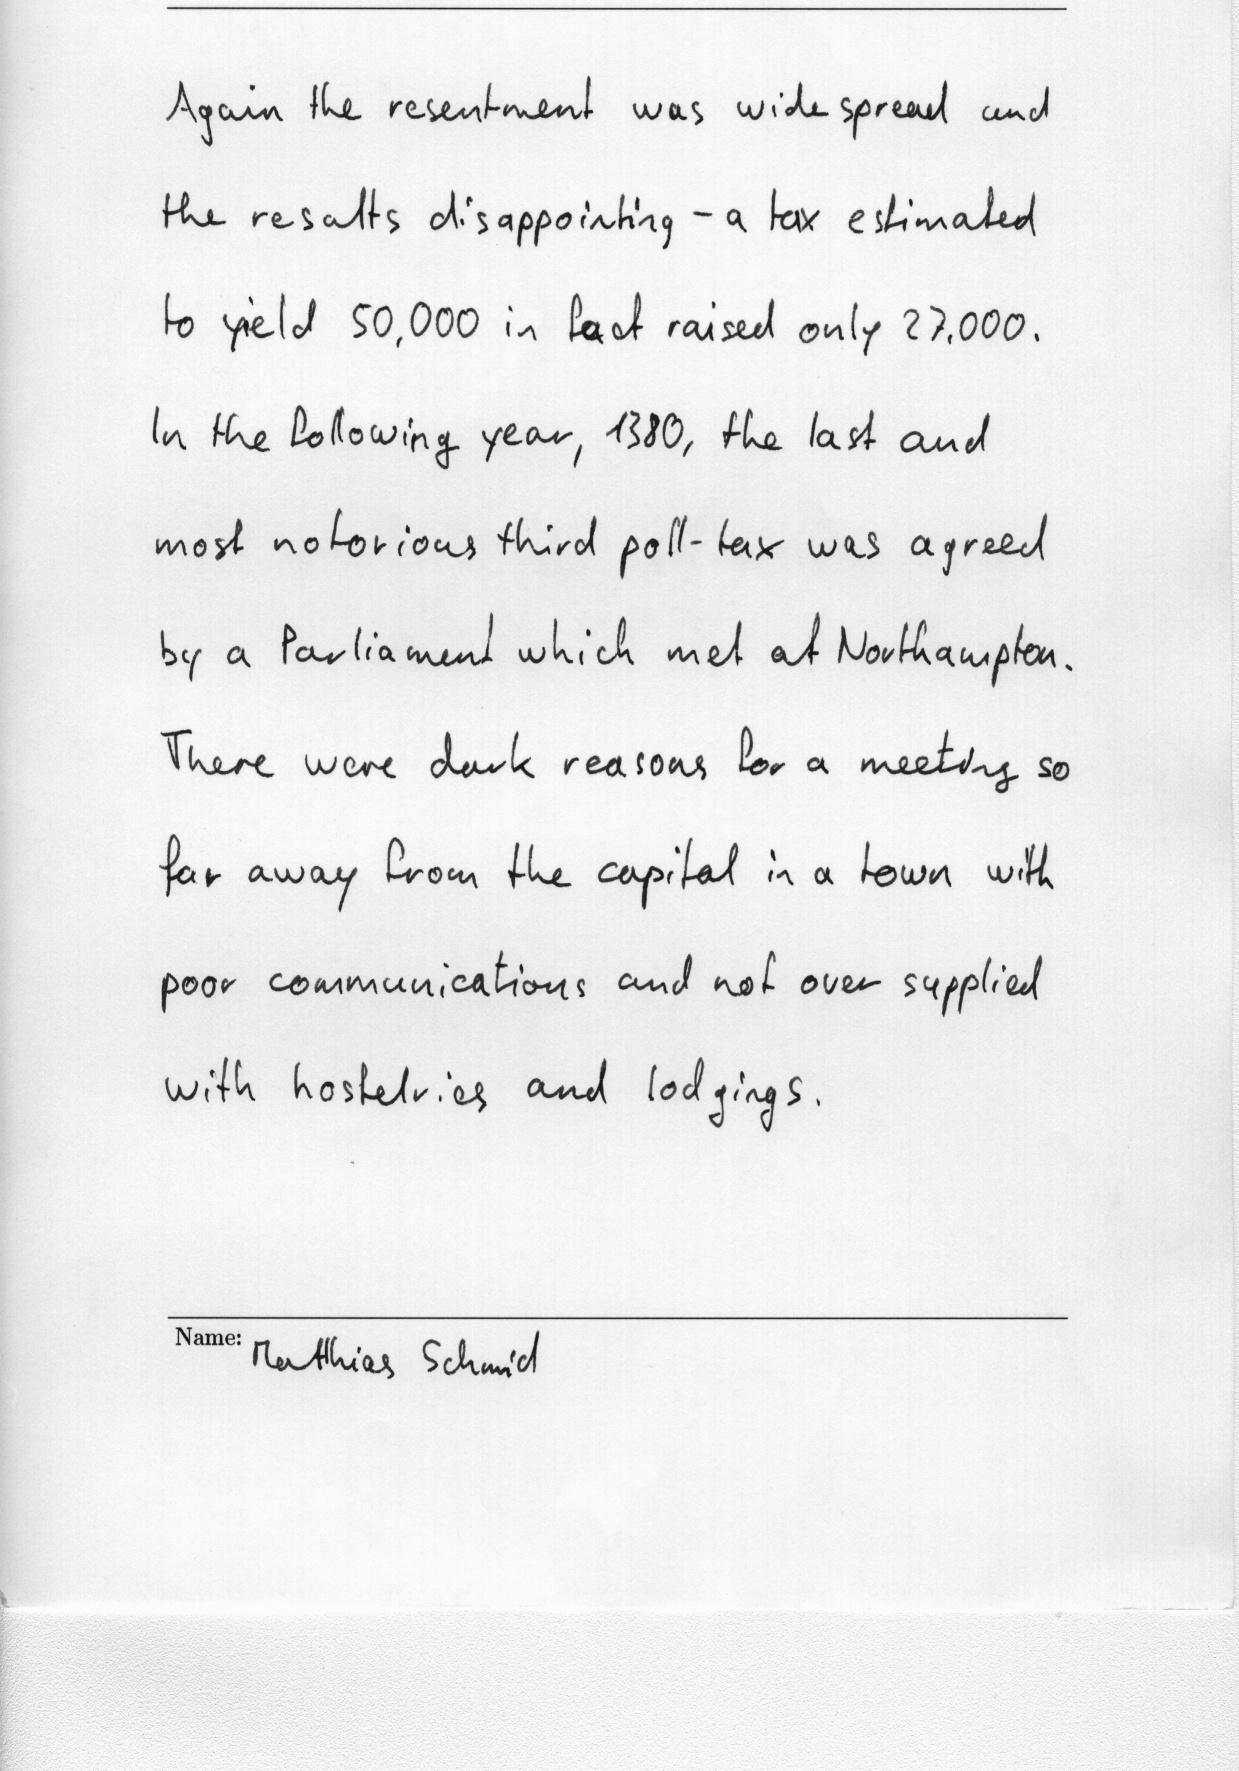 Again the resentment was wide spread and
the results disappointing - a tax estimated
to yield 50,000 in fact raised only 27,000.
In the following year, 1380, the last and
most notorious third poll-tax was agreed
by a Parliament which met at Northampton.
There were dark reasons for a meeting so
far away from the capital in a town with
poor communications and not over supplied
with hostelries and lodgings.
Name: Matthias Schmid